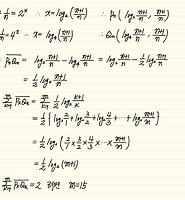 1/n = 2^x ∴ x = log₂(n+1/n) ∴ Pn(log₂ n+1/n, n+1/n)
= 4^x ∴ x = log₄(n+1/n) ∴ Qn(log₄ n+1/n, n+1/n)
PnQn = log₂ n+1/n - log₄ n+1/n = log₂ n+1/n - 1/2 log₂ n+1/n
= 1/2 log₂ n+1/n
PnQn = 1/2 log₂ k+1/k
= 1/2 { log₂ 2/1 + log₂ 3/2 + log₂ 4/3 + ... + log₂ m+1/m }
= 1/2 log₂ ( 2/1 × 3/2 × 4/3 × ... × m+1/m )
= 1/2 log₂ (m+1)
PnQn = 2 m=15